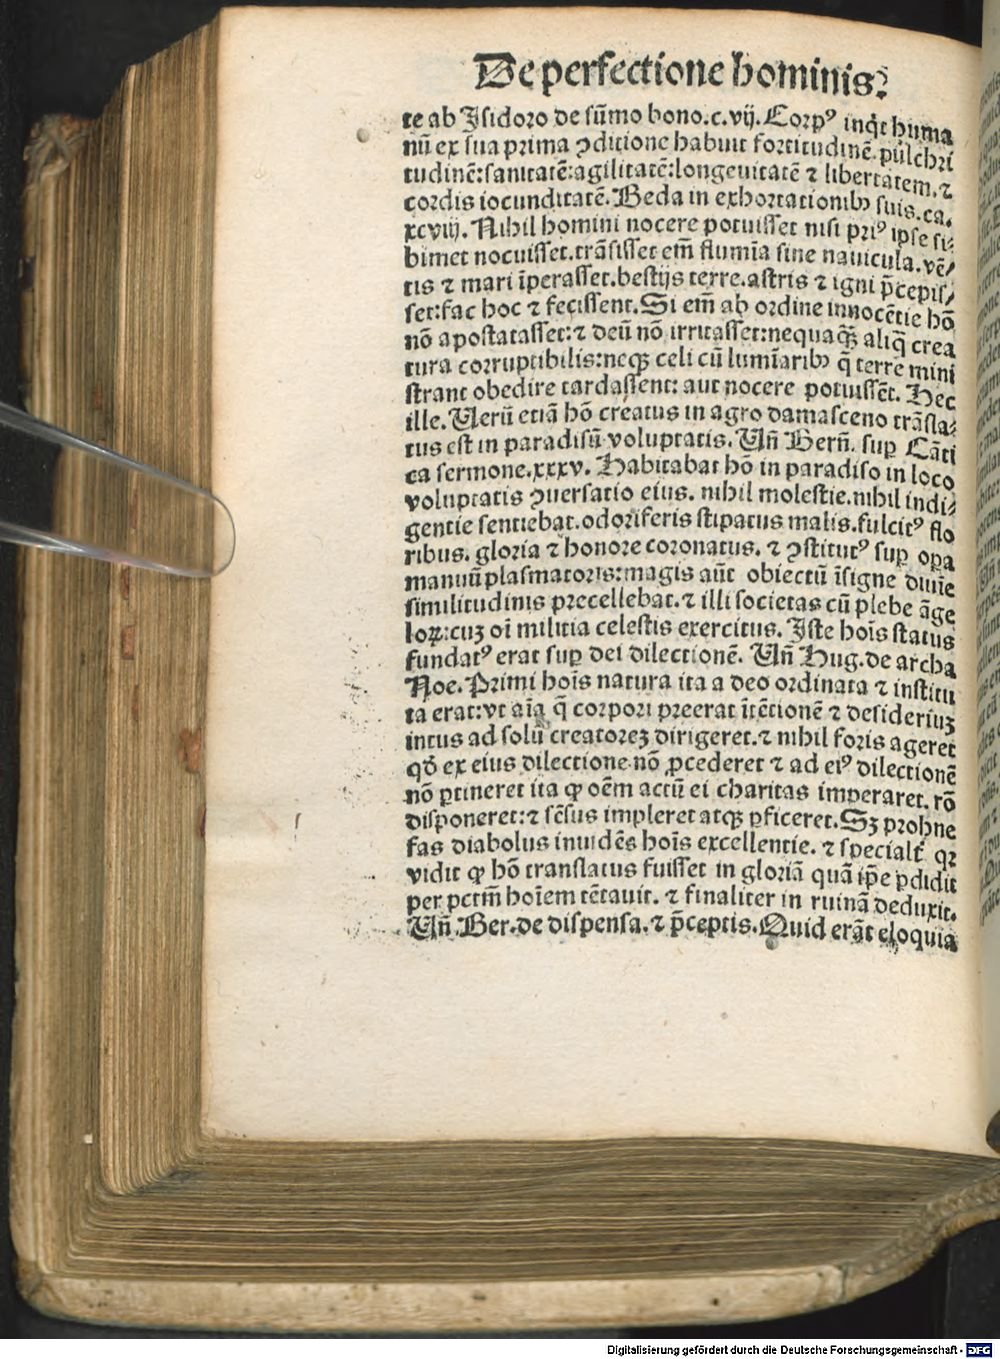 De perfectione hominis.
te ab Isidoro de sūmo bono.c.vij. Corpꝰ inqͥt huma
nū ex sua prima ꝯditione habuit fortitudinē.pulchri
tudinē:sanitatē:agilitatē:longeuitatē ⁊ libertatem.⁊
cordis iocunditatē. Beda in exhortationibꝫ suis.ca.
xcviij. Nihil homini nocere potuisset nisi priꝰ ipse si⸗
bimet nocuisset.trāsisset em̄ flumīa sine nauicula.vē⸗
tis ⁊ mari īperasset.bestijs terre.astris ⁊ igni p̄cepis⸗
set:fac hoc ⁊ fecissent. Si em̄ ab ordine innocētie hō
nō apostatasset:⁊ deū nō irritasset:nequaqꝫ̄ aliq̄ crea
tura corruptibilis:neqꝫ celi cū lumīaribꝫ q̄ terre mini
strant obedire tardassent: aut nocere potuissēt. Hec
ille. Uerū etiā hō creatus in agro damasceno trāsla⸗
tus est in paradisū voluptatis. Un̄ Bern̄. suꝑ Cāti
ca sermone.xxxv. Habitabat hō in paradiso in loco
voluptatis ꝯuersatio eius. nihil molestie.nihil indi⸗
gentie sentiebat.odoriferis stipatus malis.fulcitꝰ flo
ribus. gloria ⁊ honore coronatus. ⁊ ꝯstitutꝰ suꝑ oꝑa
manuū plasmatoris:magis aūt obiectū īsigne diuīe
similitudinis precellebat.⁊ illi societas cū plebe āge
loꝝ:cuꝫ oī militia celestis exercitus. Iste hoīs status
fundatꝰ erat suꝑ dei dilectionē. Un̄ Hug.de archa
Noe. Primi hoīs natura ita a deo ordinata ⁊ institu
ta erat:vt aīa q̄ corpori preerat ītētionē ⁊ desideriuꝫ
intus ad solū creatoreꝫ dirigeret.⁊ nihil foris ageret
qđ ex eius dilectione nō ꝓcederet ⁊ ad eiꝰ dilectionē
nō ꝑtineret ita ꝙ oēm actū ei charitas imperaret. rō
disponeret:⁊ sēsus impleret atqꝫ ꝑficeret. Sꝫ prohne
fas diabolus inuidēs hoīs excellentie. ⁊ specialr̄ qꝛ
vidit ꝙ hō translatus fuisset in gloriā quā ip̄e ꝑdidit
per pctm̄ hoīem tētauit. ⁊ finaliter in ruinā deduxit.
Un̄ Ber.de dispensa.⁊ p̄ceptis. Quid erāt eloquia
Digitalisierung gefördert durch die Deutsche Forschungsgemeinschaft - DFG